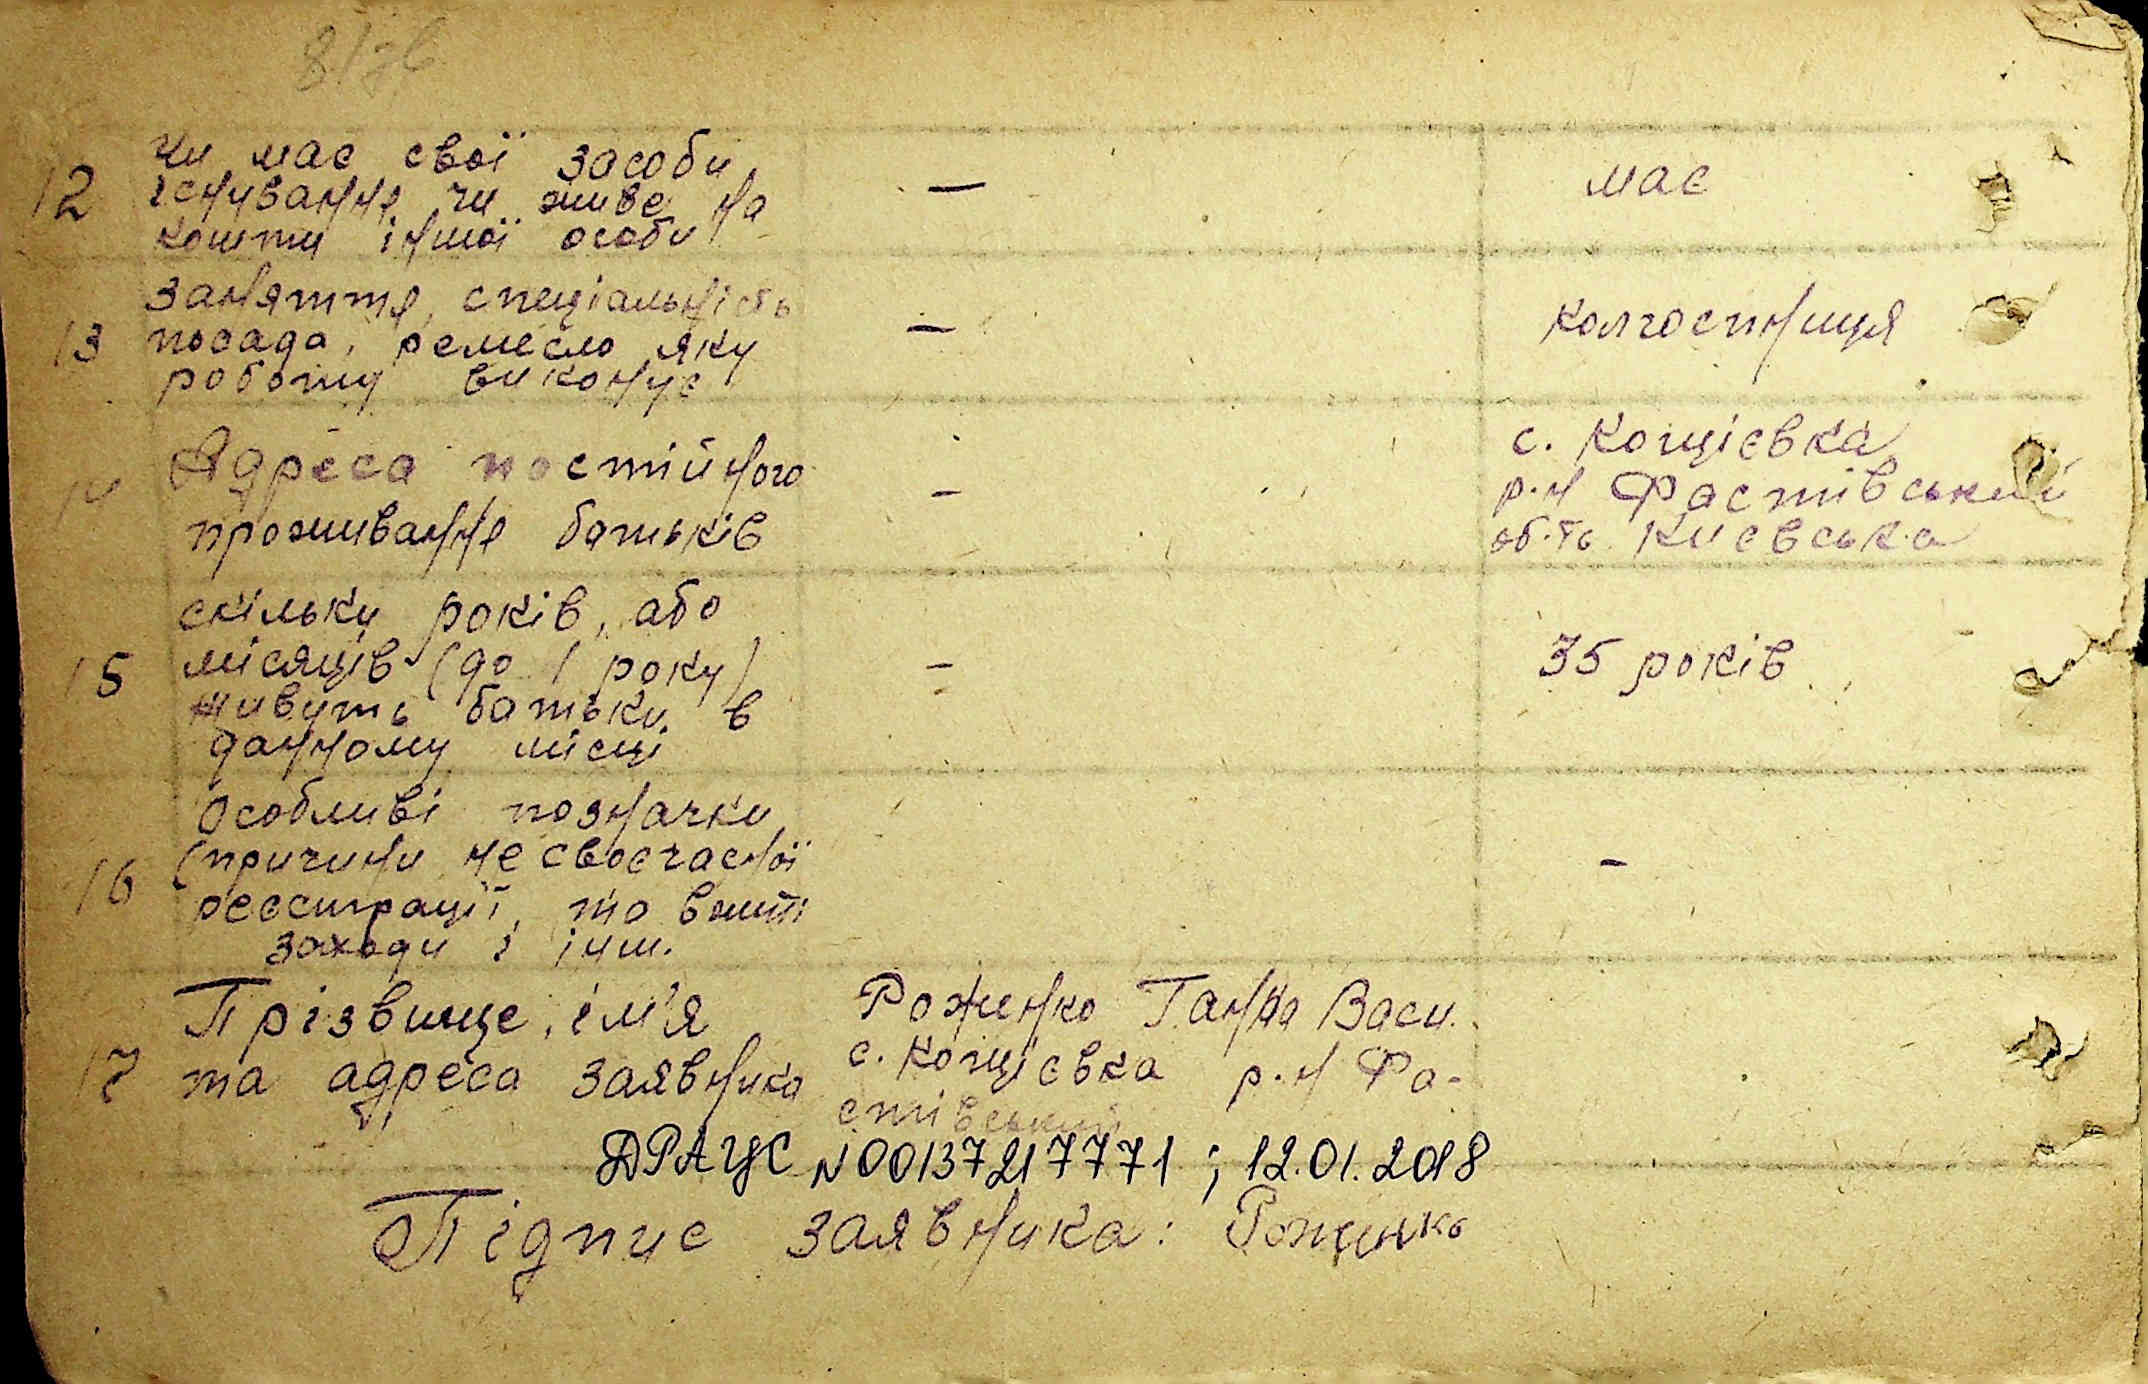 8/зв
12
чи має свої засоби
існування чи живе на
кошти іншої особи
—
має
13
заняття, спеціальність
посада, ремесло яку
роботу виконує
—
колгоспниця
14
Адреса постійного
проживання батьків
—
с. Кощієвка
р.н Фастівський
об.ть Києвська
15
скільки років, або
місяців (до 1 року)
живуть батьки в
данному місці
—
35 років
16
Особливі позначки
(причини не своєчасної
реєстрації, та вжиті
заходи і інш.
—
17
Прізвище, ім'я
та адреса заявника
Роженко Ганна Васи.
с. Кощієвка р.н Фа-
стівський
ДРАЦС N00137217771; 12.01.2018
Підпис заявника: Роженко